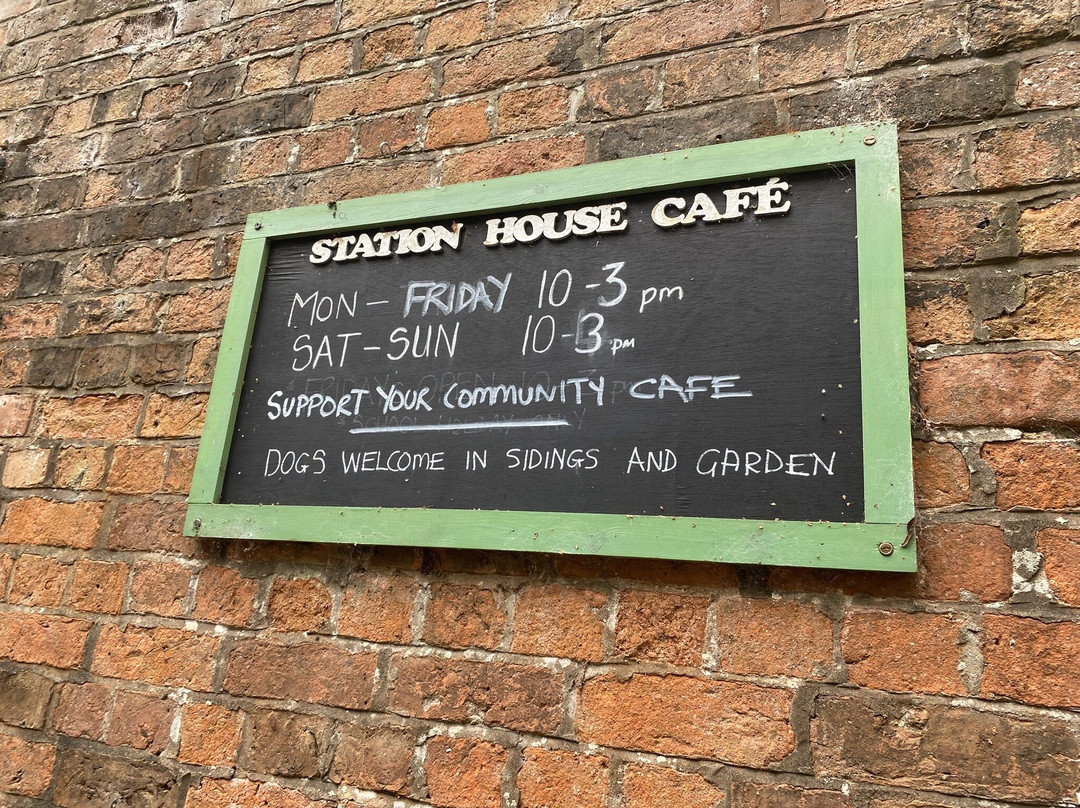 STATION HOUSE CAFÉ
MON - FRIDAY 10-3 pm
SAT-SUN 10-3 pm
SUPPORT YOUR COMMUNITY CAFE
DOGS WELCOME IN SIDINGS AND GARDEN